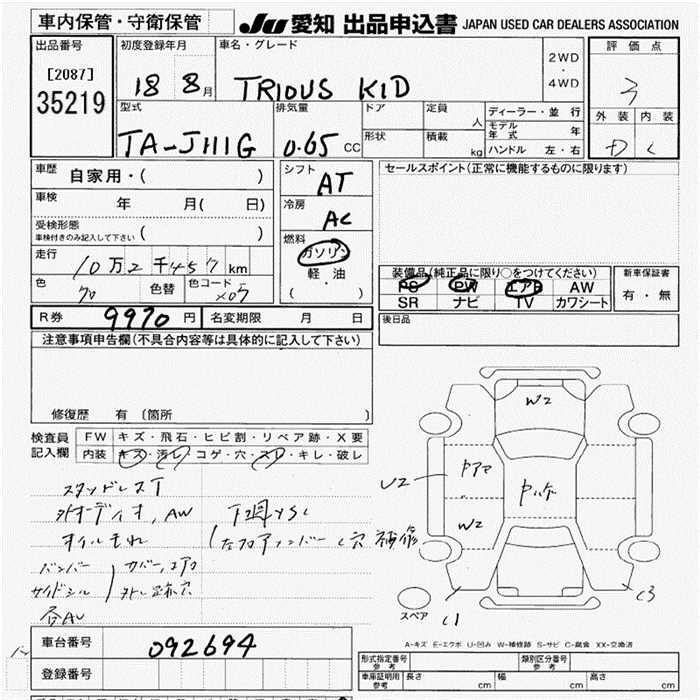 車内保管・守衛保管
JU 愛知 出品申込書 JAPAN USED CAR DEALERS ASSOCIATION
出品番号
[2087]
35219
初度登録年月
18 8月
車名・グレード
TRIOUS KID
2WD
・
4WD
評価点
3
外装 内装
D C
型式
TA-J111G
排気量
0.65 CC
ドア
形状
定員 人
積載 kg
ディーラー・並行
モデル年式 年
ハンドル 左・右
車歴
自家用・( )
車検 年 月( 日)
受検形態
車検付きのみ記入して下さい ( )
走行 10万2千457km
色
色替
色コード
シフト
AT
冷房
AC
燃料
ガソリン
軽・油
( )
セールスポイント(正常に機能するものに限ります)
装備品(純正品に限り○をつけてください)
PS PW エアB AW
SR ナビ TV カワシート
新車保証書
有・無
R券 9970円 名変期限 月 日
後日品
注意事項申告欄(不具合内容等は具体的に記入して下さい)
修復歴 有〔箇所 〕
検査員
記入欄
FW キズ・飛石・ヒビ割・リペア跡・X要
内装 キズ・汚レ・コゲ・穴・スレ・キレ・破レ
スタッドレスT
外オーディオ, AW
オイルモれ
バンパー
サイドシル
カバー, エアロ
W2
U2
W2
C1
C3
スペア
A-キズ E-エクボ U-凹み W-補修跡 S-サビ C-腐食 XX-交換済
車台番号 092694
登録番号
形式指定番号
参考
類別区分番号
参考
車庫証明用
参考
長さ cm 幅 cm 高さ cm